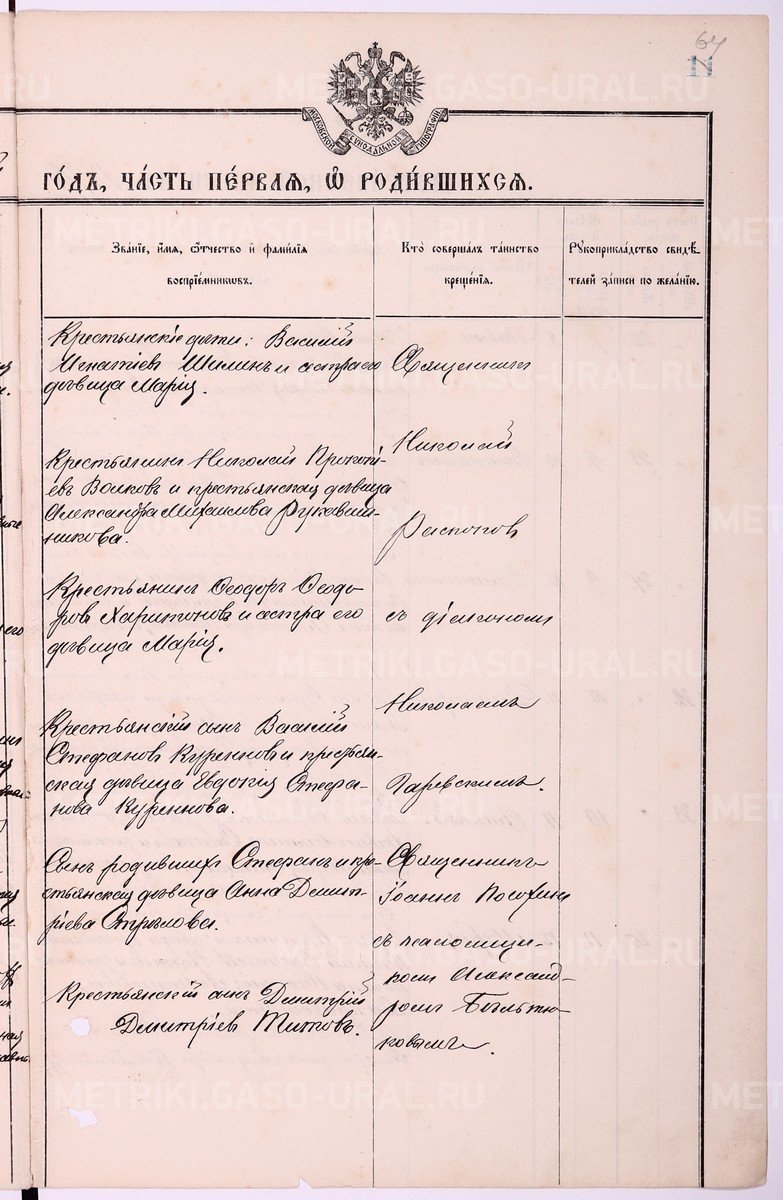 64
11
МОСКОВСКОЙ СѴНОДАЛЬНОЙ ТИПОГРАФІИ
METRIKI.GASO-URAL.RU
го́дъ, ча́сть пе́рваѧ, ѡ҆ роди́вшихсѧ.
Зва́нїе, и҆́мѧ, ѻ҆́тчество и҆ фами́лїѧ
воспрїе́мникѡвъ.
Кто̀ соверша́лъ та́инство
креще́нїѧ.
Рꙋкоприкла́дство свидѣ́-
телей за́писи по жела́нїю.
Крестьянскіе дѣти: Василій
Игнатіев Шилинъ и сестра его
дѣвица Марія.
Священникъ
Николай
Крестьянинъ Николай Прокопі-
евъ Волковъ и крестьянская дѣвица
Александра Михаилова Рукавиш-
никова.
Распопов
Крестьянинъ Ѳеодоръ Ѳеодо-
ровъ Харитоновъ и сестра его
дѣвица Марія.
съ діакономъ
Николаемъ
Крестьянскій сынъ Василій
Стефановъ Куренновъ и крестьян-
ская дѣвица Евдокія Стефа-
нова Куреннова.
Гаревскимъ.
Сынъ родившихъ Стефанъ и кре-
стьянская дѣвица Анна Димит-
ріева
Священникъ
Іоаннъ
съ псаломщи-
комъ Александ-
ромъ
ковымъ.
Крестьянскій сынъ Димитрій
Димитріевъ Титовъ.
METRIKI.GASO-URAL.RU